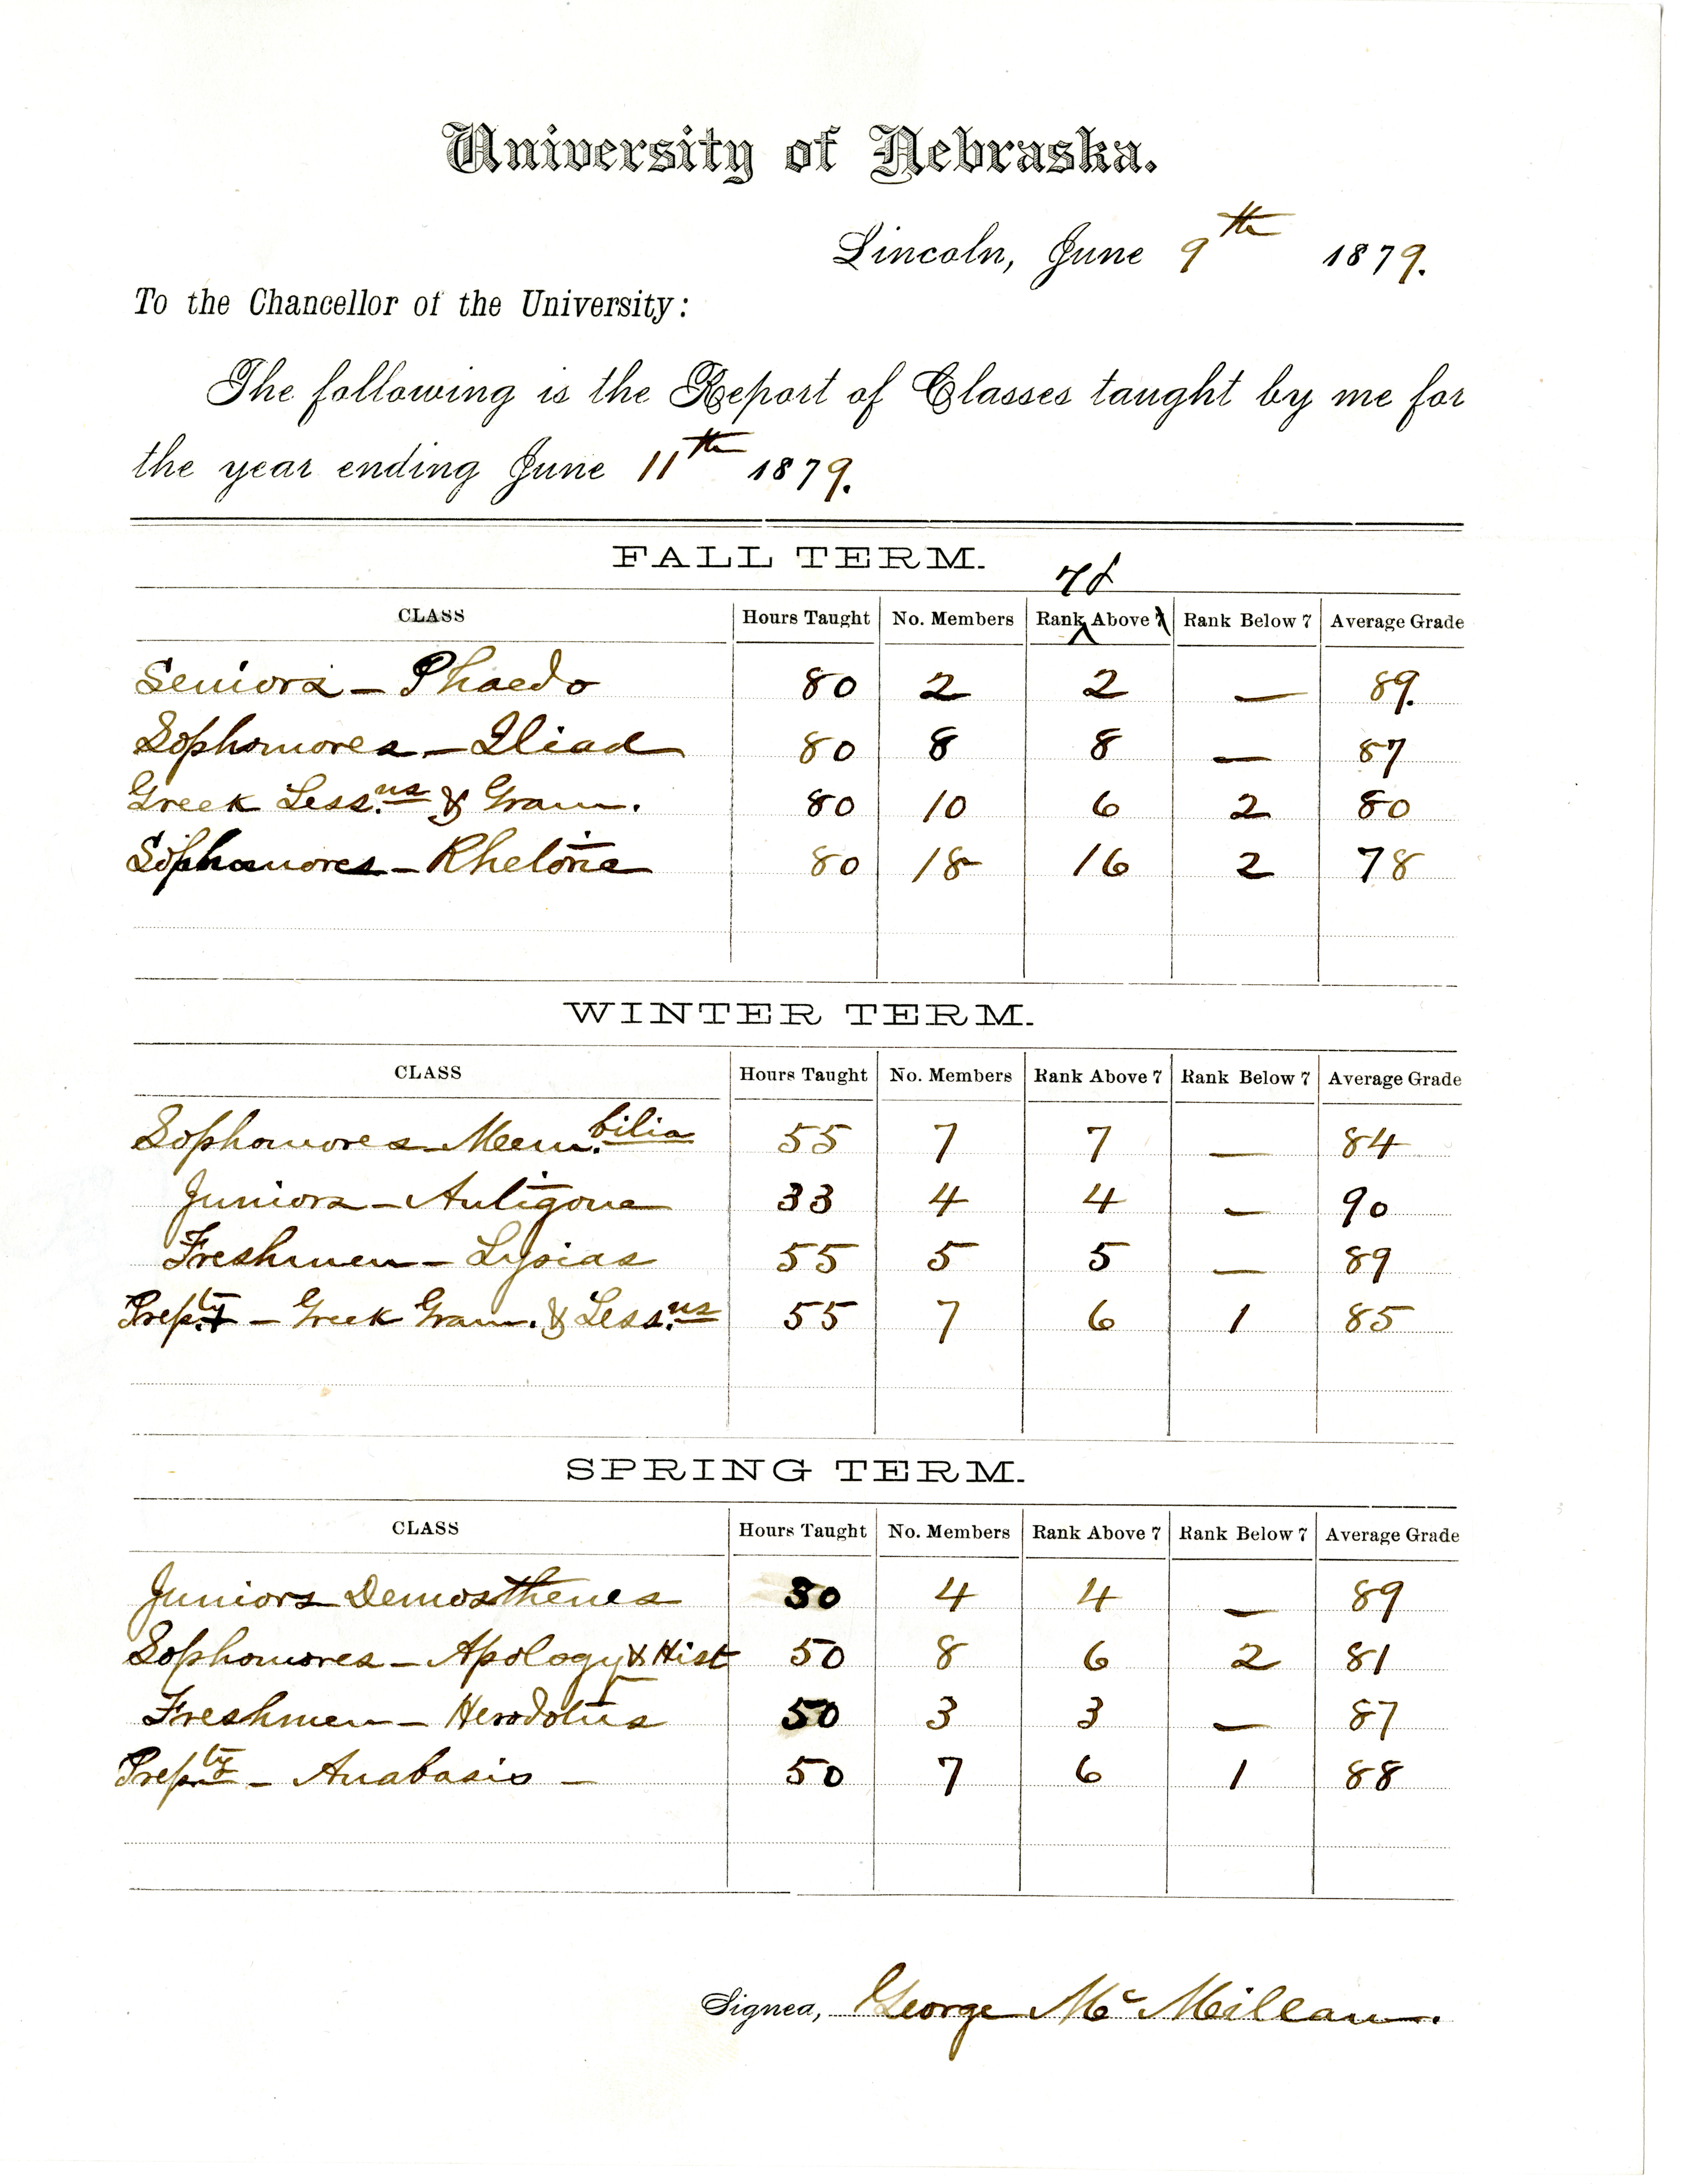 University of Nebraska.
Lincoln, June 9th 1879.
To the Chancellor of the University:
The following is the Report of Classes taught by me for
the year ending June 11th 1879.
FALL TERM.
70
CLASS Hours Taught No. Members Rank Above 7 Rank Below 7 Average Grade
Seniors – Phaedo 80 2 2 — 89.
Sophomores – Iliad 80 8 8 — 87
Greek Less.ns & Gram. 80 10 6 2 80
Sophomores – Rhetoric 80 18 16 2 78
WINTER TERM.
CLASS Hours Taught No. Members Rank Above 7 Rank Below 7 Average Grade
Sophomores – Mem.bilia 55 7 7 — 84
Juniors – Antigone 33 4 4 — 90
Freshmen – Lysias 55 5 5 — 89
Prep.ty – Greek Gram. & Less.ns 55 7 6 1 85
SPRING TERM.
CLASS Hours Taught No. Members Rank Above 7 Rank Below 7 Average Grade
Juniors Demosthenes 30 4 4 — 89
Sophomores – Apology & Hist 50 8 6 2 81
Freshmen – Herodotus 50 3 3 — 87
Prep.ty – Anabasis – 50 7 6 1 88
Signed, George McMillan.